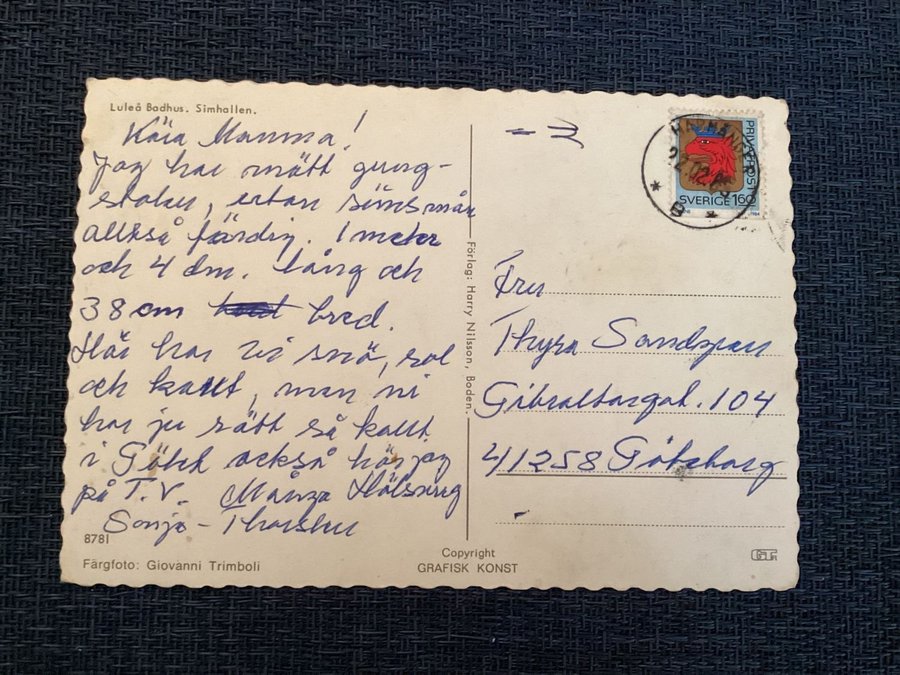 Luleå Badhus. Simhallen.
Kära Mamma!
Jag har mätt gung-
stolen, utan
alltså färdig. 1 meter
och 4 dm. lång och
38 cm bred.
Här har vi snö, sol
och kallt, men ni
har ju rätt så kallt
i Götet också hör jag
på T.V. Många Hälsning
Sonja - Thorsten
8781
Färgfoto: Giovanni Trimboli
Förlag: Harry Nilsson, Boden.
Copyright
GRAFISK KONST
PRIVATPOST
SVERIGE 160
B
Fru
Thyra Sandgren
Gibraltargat. 104
41258 Göteborg